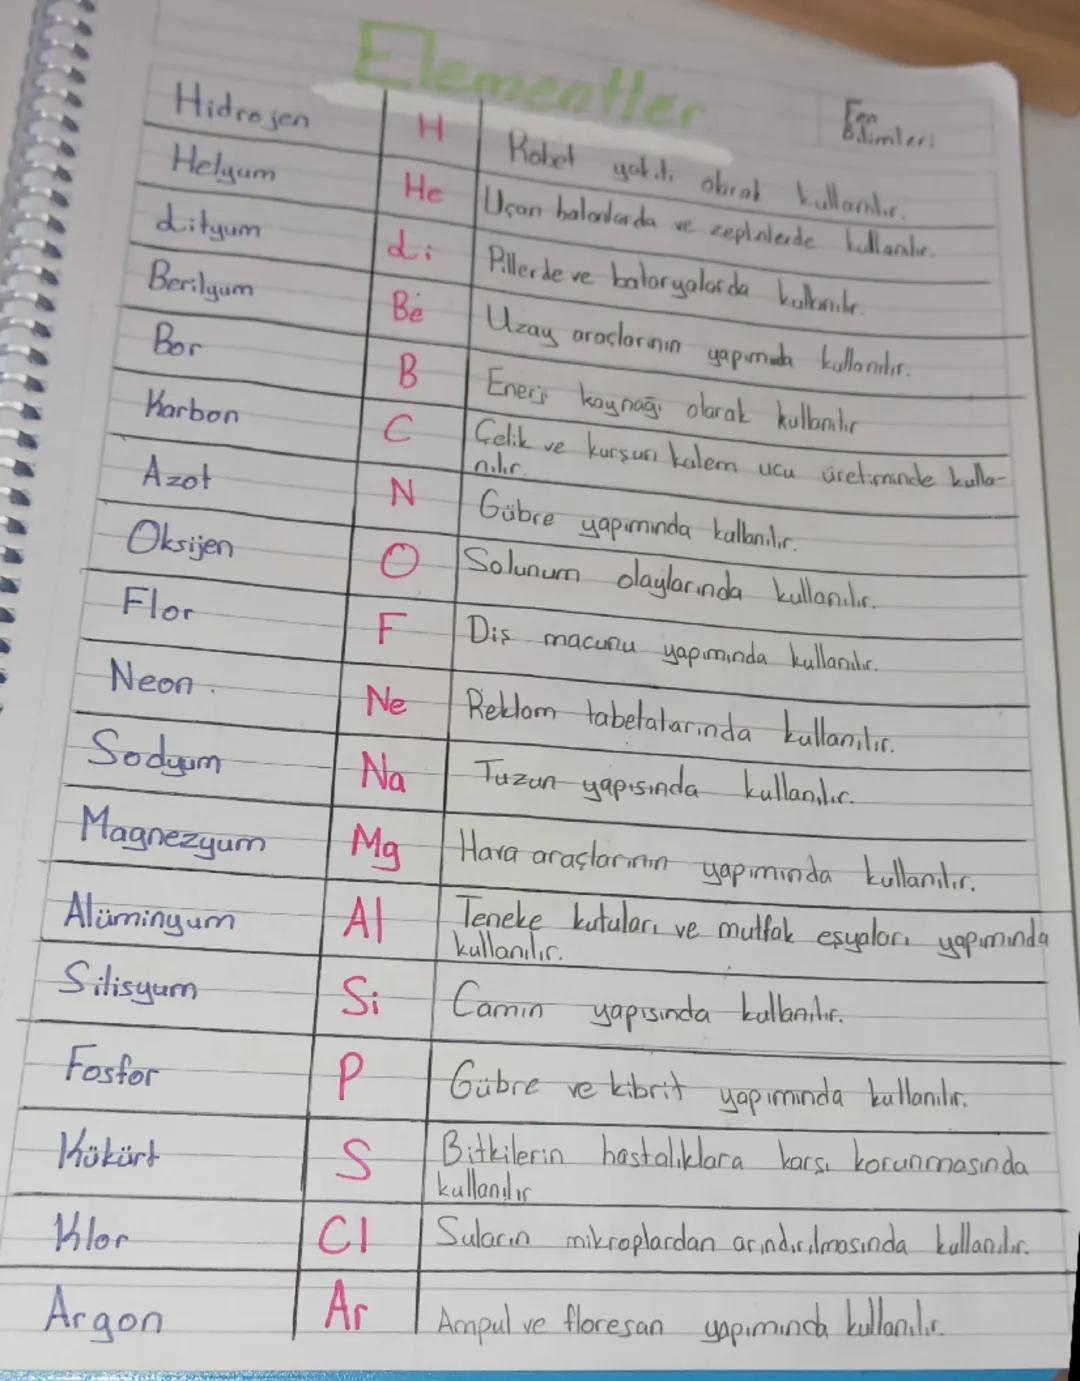 Elementler
Fen
Bilimleri
Hidrojen H Roket yakıtı olarak kullanılır.
Helyum He Uçan balonlarda ve zeplinlerde kullanılır.
Lityum Li Pillerde ve bataryalarda kullanılır.
Berilyum Be Uzay araçlarının yapımında kullanılır.
Bor B Enerji kaynağı olarak kullanılır
Karbon C Çelik ve kurşun kalem ucu üretiminde kulla-
nılır.
Azot N Gübre yapımında kullanılır.
Oksijen O Solunum olaylarında kullanılır.
Flor F Diş macunu yapımında kullanılır.
Neon. Ne Reklam tabelalarında kullanılır.
Sodyum Na Tuzun yapısında kullanılır.
Magnezyum Mg Hava araçlarının yapımında kullanılır.
Alüminyum Al Teneke kutuları ve mutfak eşyaları yapımında
kullanılır.
Silisyum Si Camın yapısında kullanılır.
Fosfor P Gübre ve kibrit yapımında kullanılır.
Kükürt S Bitkilerin hastalıklara karşı korunmasında
kullanılır
Klor Cl Suların mikroplardan arındırılmasında kullanılır.
Argon Ar Ampul ve floresan yapımında kullanılır.